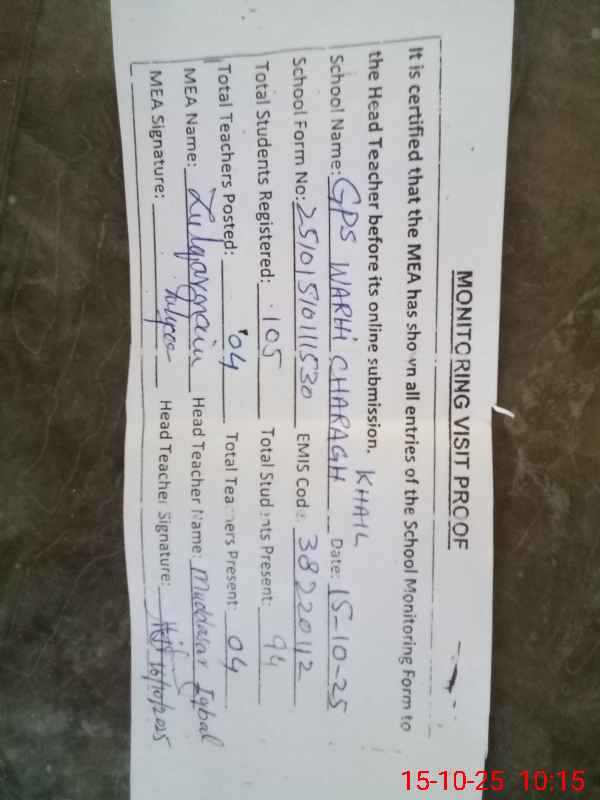 MONITORING VISIT PROOF
It is certified that the MEA has shown all entries of the School Monitoring Form to
the Head Teacher before its online submission.
School Name: GPS WARHI CHARAGH KHAIL Date: 15-10-25
School Form No: 25101510111530 EMIS Code: 38220112
Total Students Registered: 105 Total Students Present: 94
Total Teachers Posted: 04 Total Teachers Present: 04
MEA Name: Zulqarnain Head Teacher Name: Muddasar Iqbal
MEA Signature: Head Teacher Signature: 16/10/2025
15-10-25 10:15